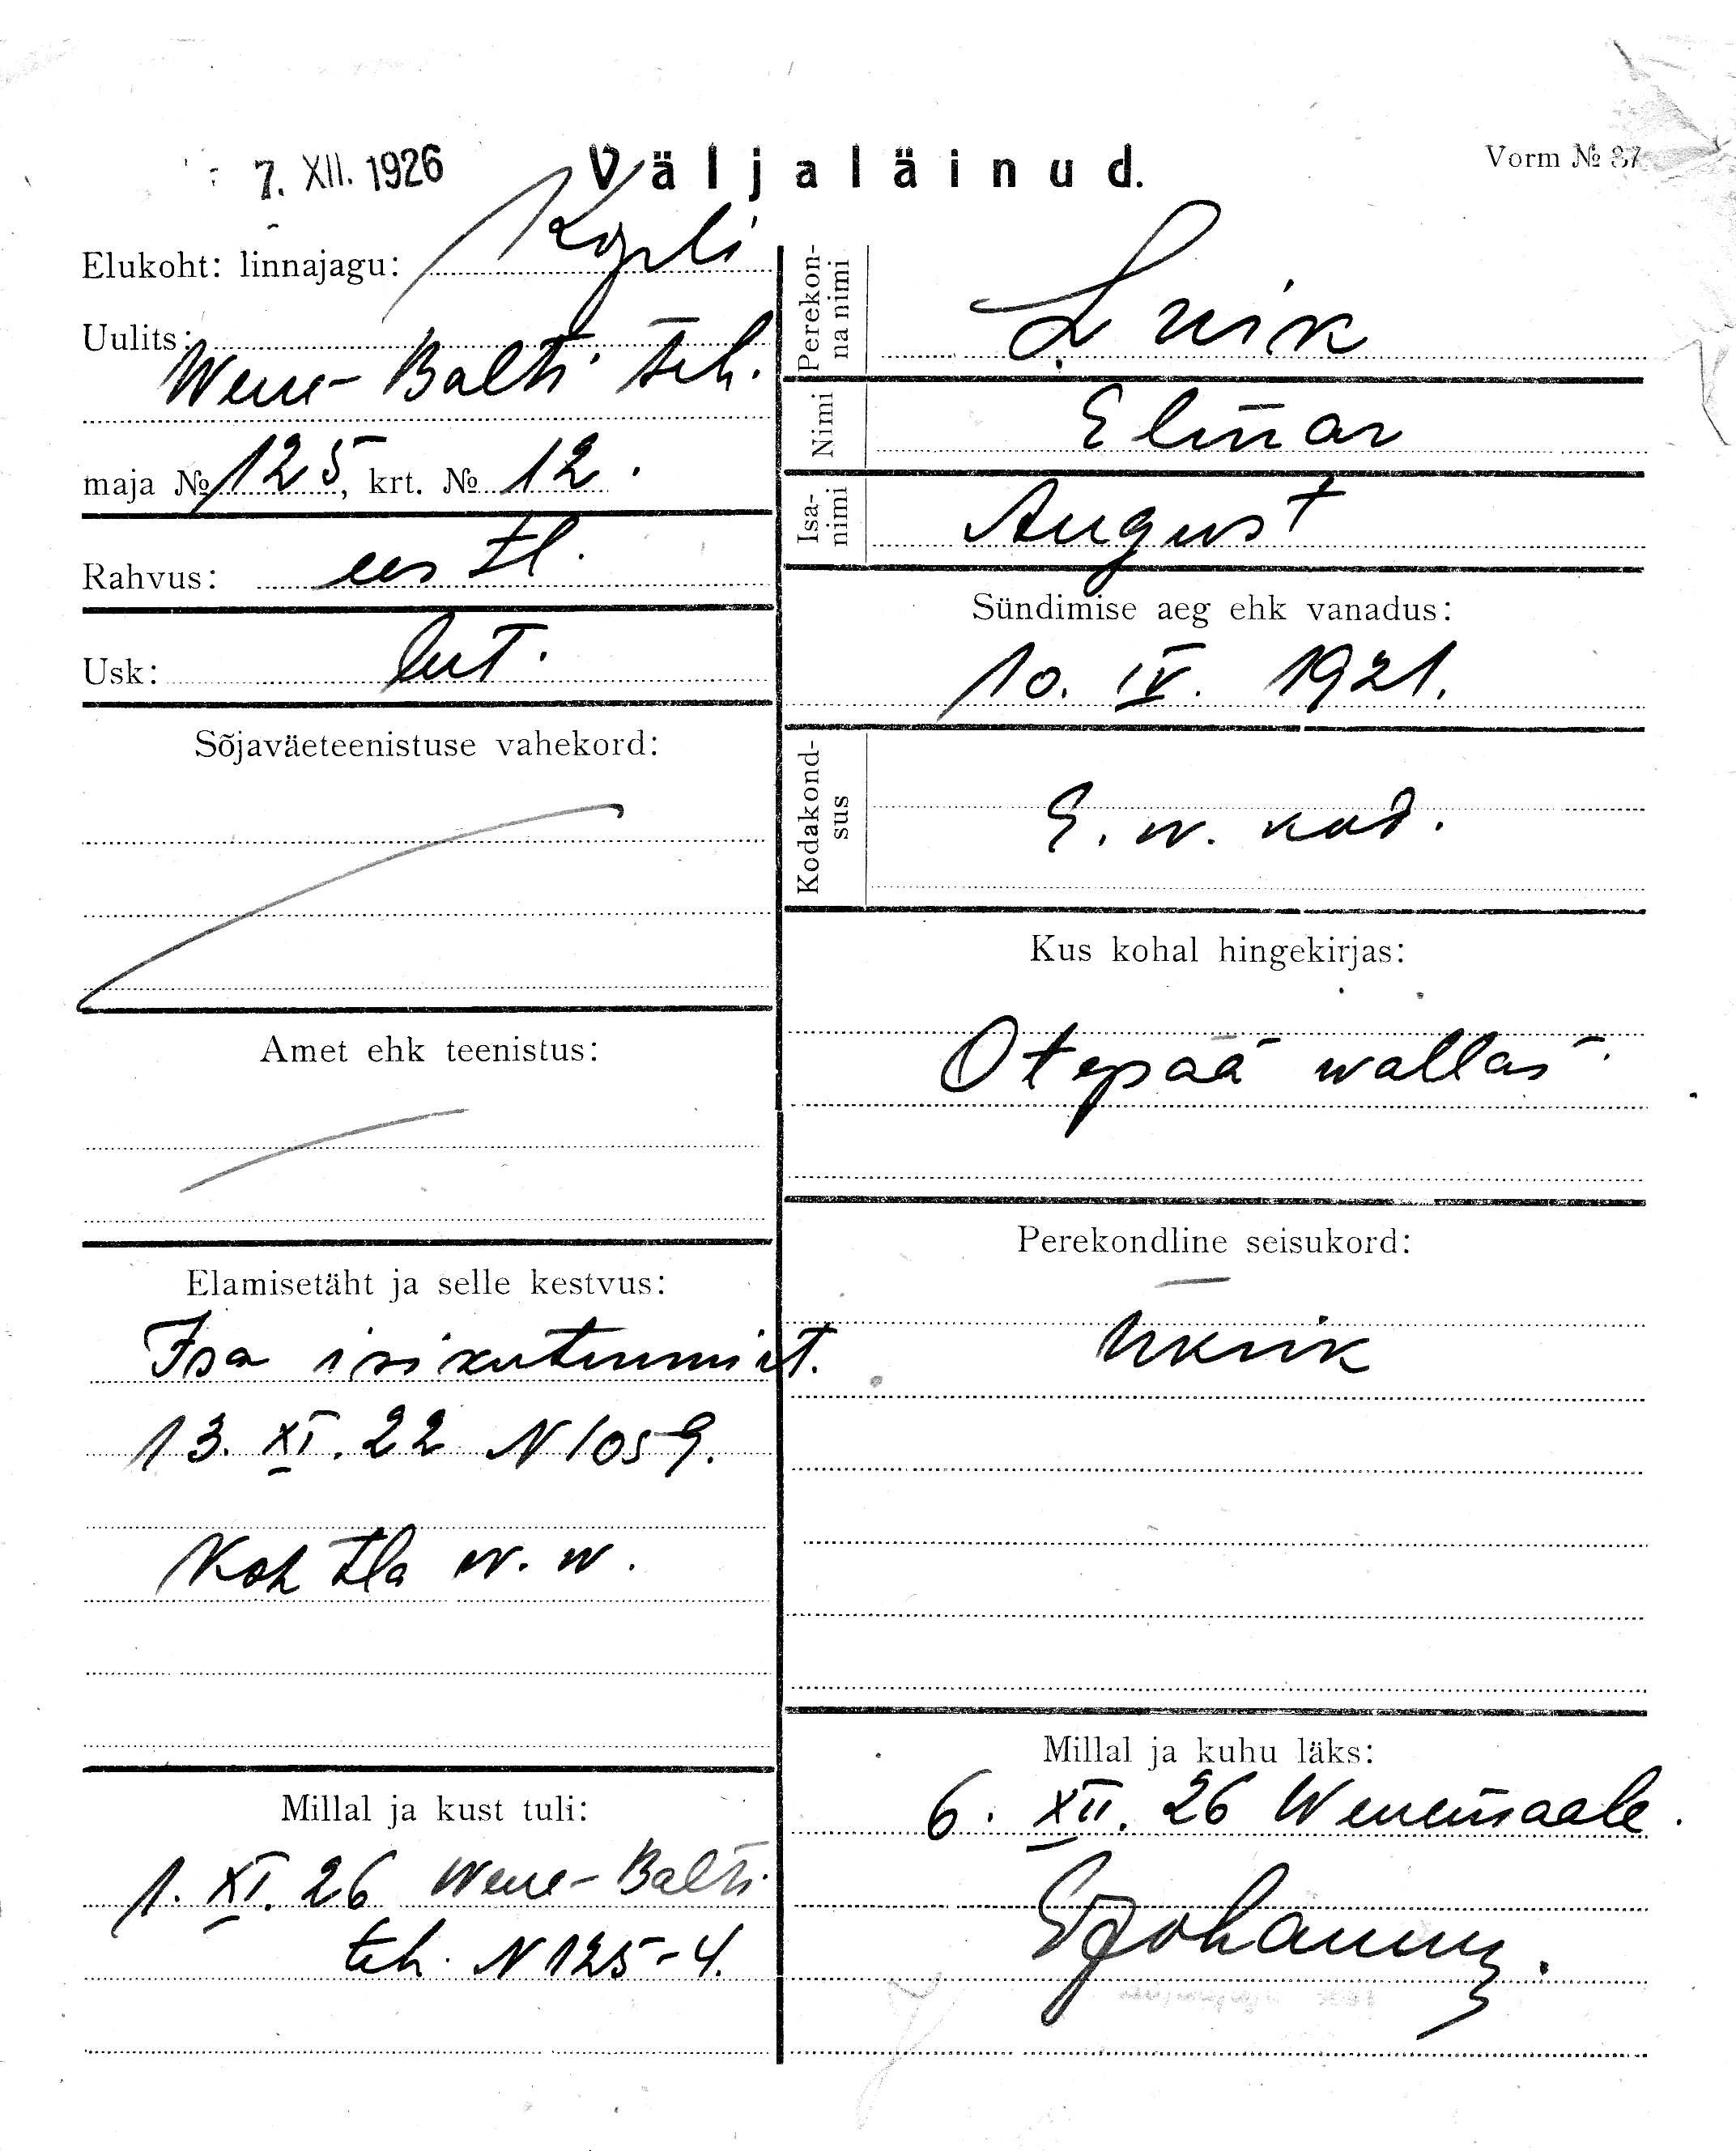 7. XII. 1926
Väljaläinud.
Vorm № 87
Elukoht: linnajagu: Kopli
Uulits:
Wene-Balti teh.
maja № 125, krt. № 12.
Rahvus: eestl.
Usk: lut.
Sõjaväeteenistuse vahekord:
Amet ehk teenistus:
Elamisetäht ja selle kestvus:
Isa isikutunnist.
13. XI. 22 N 1059.
Kohtla w. w.
Millal ja kust tuli:
1. XI. 26 Wene-Balti
teh. N 125-4.
Perekon-
na nimi
Luik
Nimi
Elmar
Isa-
nimi
August
Sündimise aeg ehk vanadus:
10. IV. 1921.
Kodakond-
sus
E. w. kod.
Kus kohal hingekirjas:
Otepää wallas.
Perekondline seisukord:
Millal ja kuhu läks:
6. XII. 26 Wenemaale.